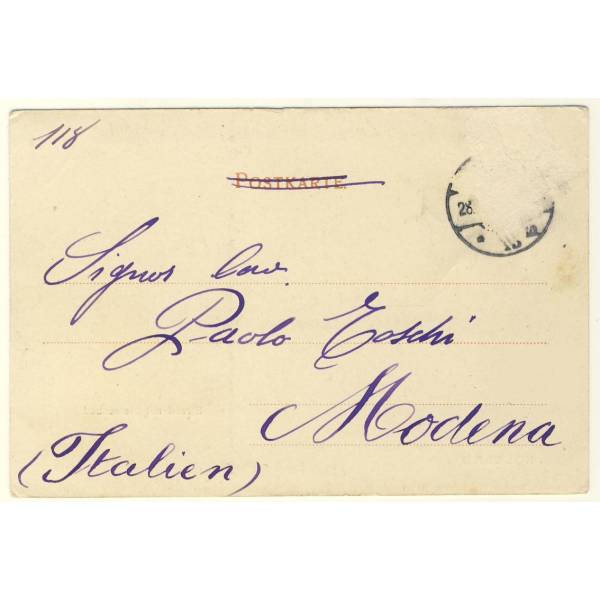 118
POSTKARTE
28.
Signor Cav.
Paolo Toschi
Modena
(Italien)